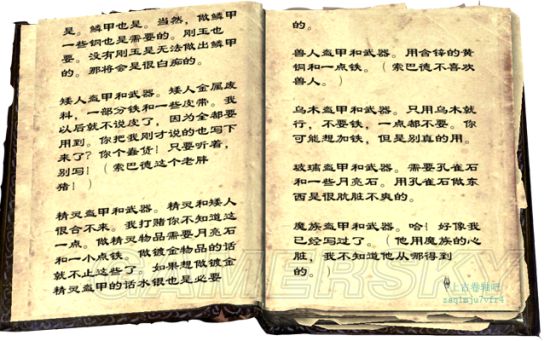 是。鳞甲也是。当然，做鳞甲
一些铜也是需要的。刚玉也
要。没有刚玉是无法做出鳞甲
的。那将会是很白痴的。
矮人盔甲和武器。矮人金属废
料，一部分铁和一些皮带。我
以后就不说皮了，因为全都要
用到。你把我刚才说的也写下
来了？你个蠢货！只要听着，
别写！（索巴德这个老胖
猪！）
精灵盔甲和武器。精灵和矮人
很合不来。我打赌你不知道这
一点。做精灵物品需要月亮石
和一小点铁。做镀金物品的话
就不止这些了。如果想做镀金
精灵盔甲的话水银也是必要
的。
兽人盔甲和武器。用含锌的黄
铜和一点铁。（索巴德不喜欢
兽人。）
乌木盔甲和武器。只用乌木就
行，不要铁，一点都不要。你
可能想加铁，但是别真的用。
玻璃盔甲和武器。需要孔雀石
和一些月亮石。用孔雀石做东
西是很肮脏不爽的。
魔族盔甲和武器。哈！好像我
已经写过了。（他用魔族的心
脏，我不知道他从哪得到
的。）
GAMERSKY
上古卷轴吧
zaq1mju7vfr4